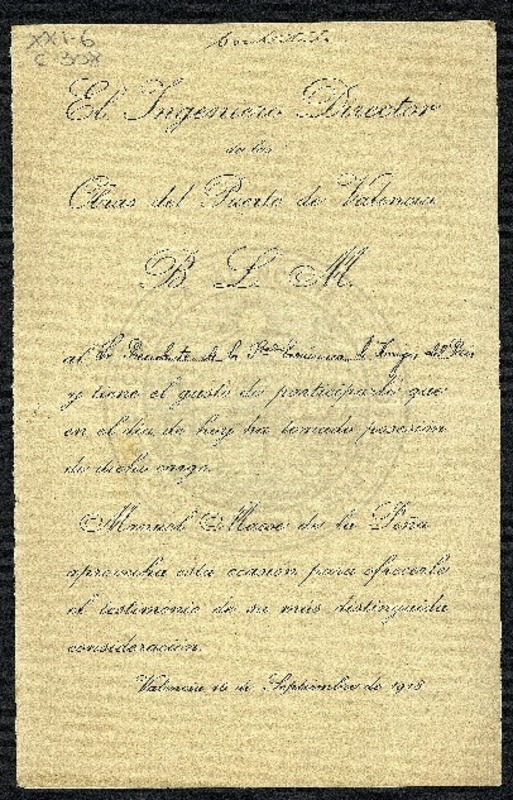 XXI-6
Contestada
El Ingeniero Director
de las
Obras del Puerto de Valencia
B. L. M.
al Sr Presidente de la Rl Sociedad E. Amigs del País
y tiene el gusto de participarle que
en el día de hoy ha tomado posesión
de dicho cargo.
Manuel Maese de la Peña
aprovecha esta ocasión para ofrecerle
el testimonio de su más distinguida
consideración.
Valencia 16 de Septiembre de 1918